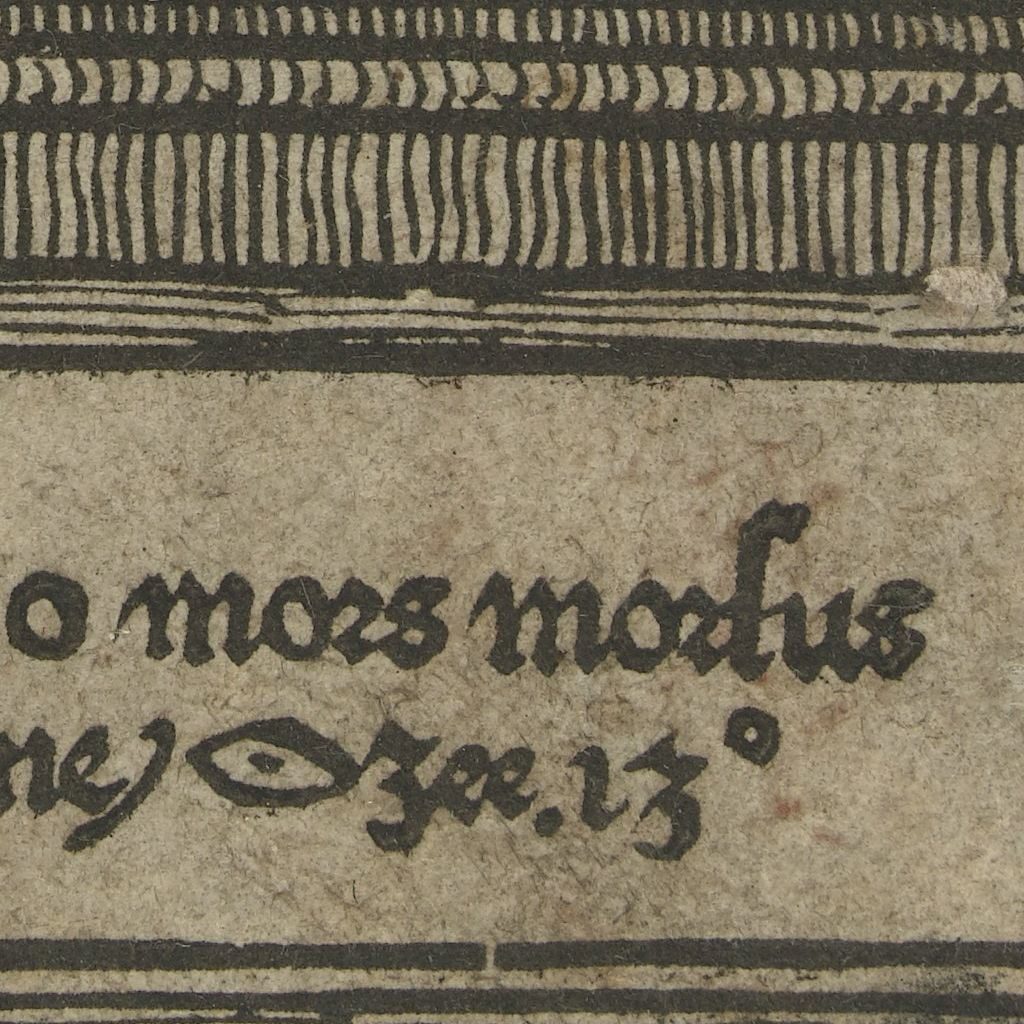 o mors morsus
ney Ozee. 13°